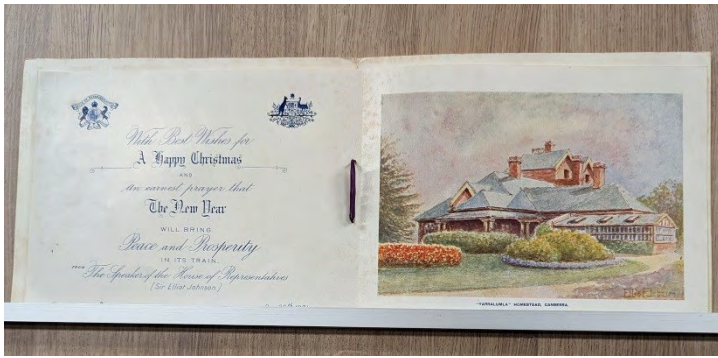 With Best Wishes for
A Happy Christmas
AND
an earnest prayer that
The New Year
WILL BRING
Peace and Prosperity
IN ITS TRAIN.
FROM The Speaker of the House of Representatives
(Sir Elliot Johnson.)
"YARRALUMLA" HOMESTEAD, CANBERRA.